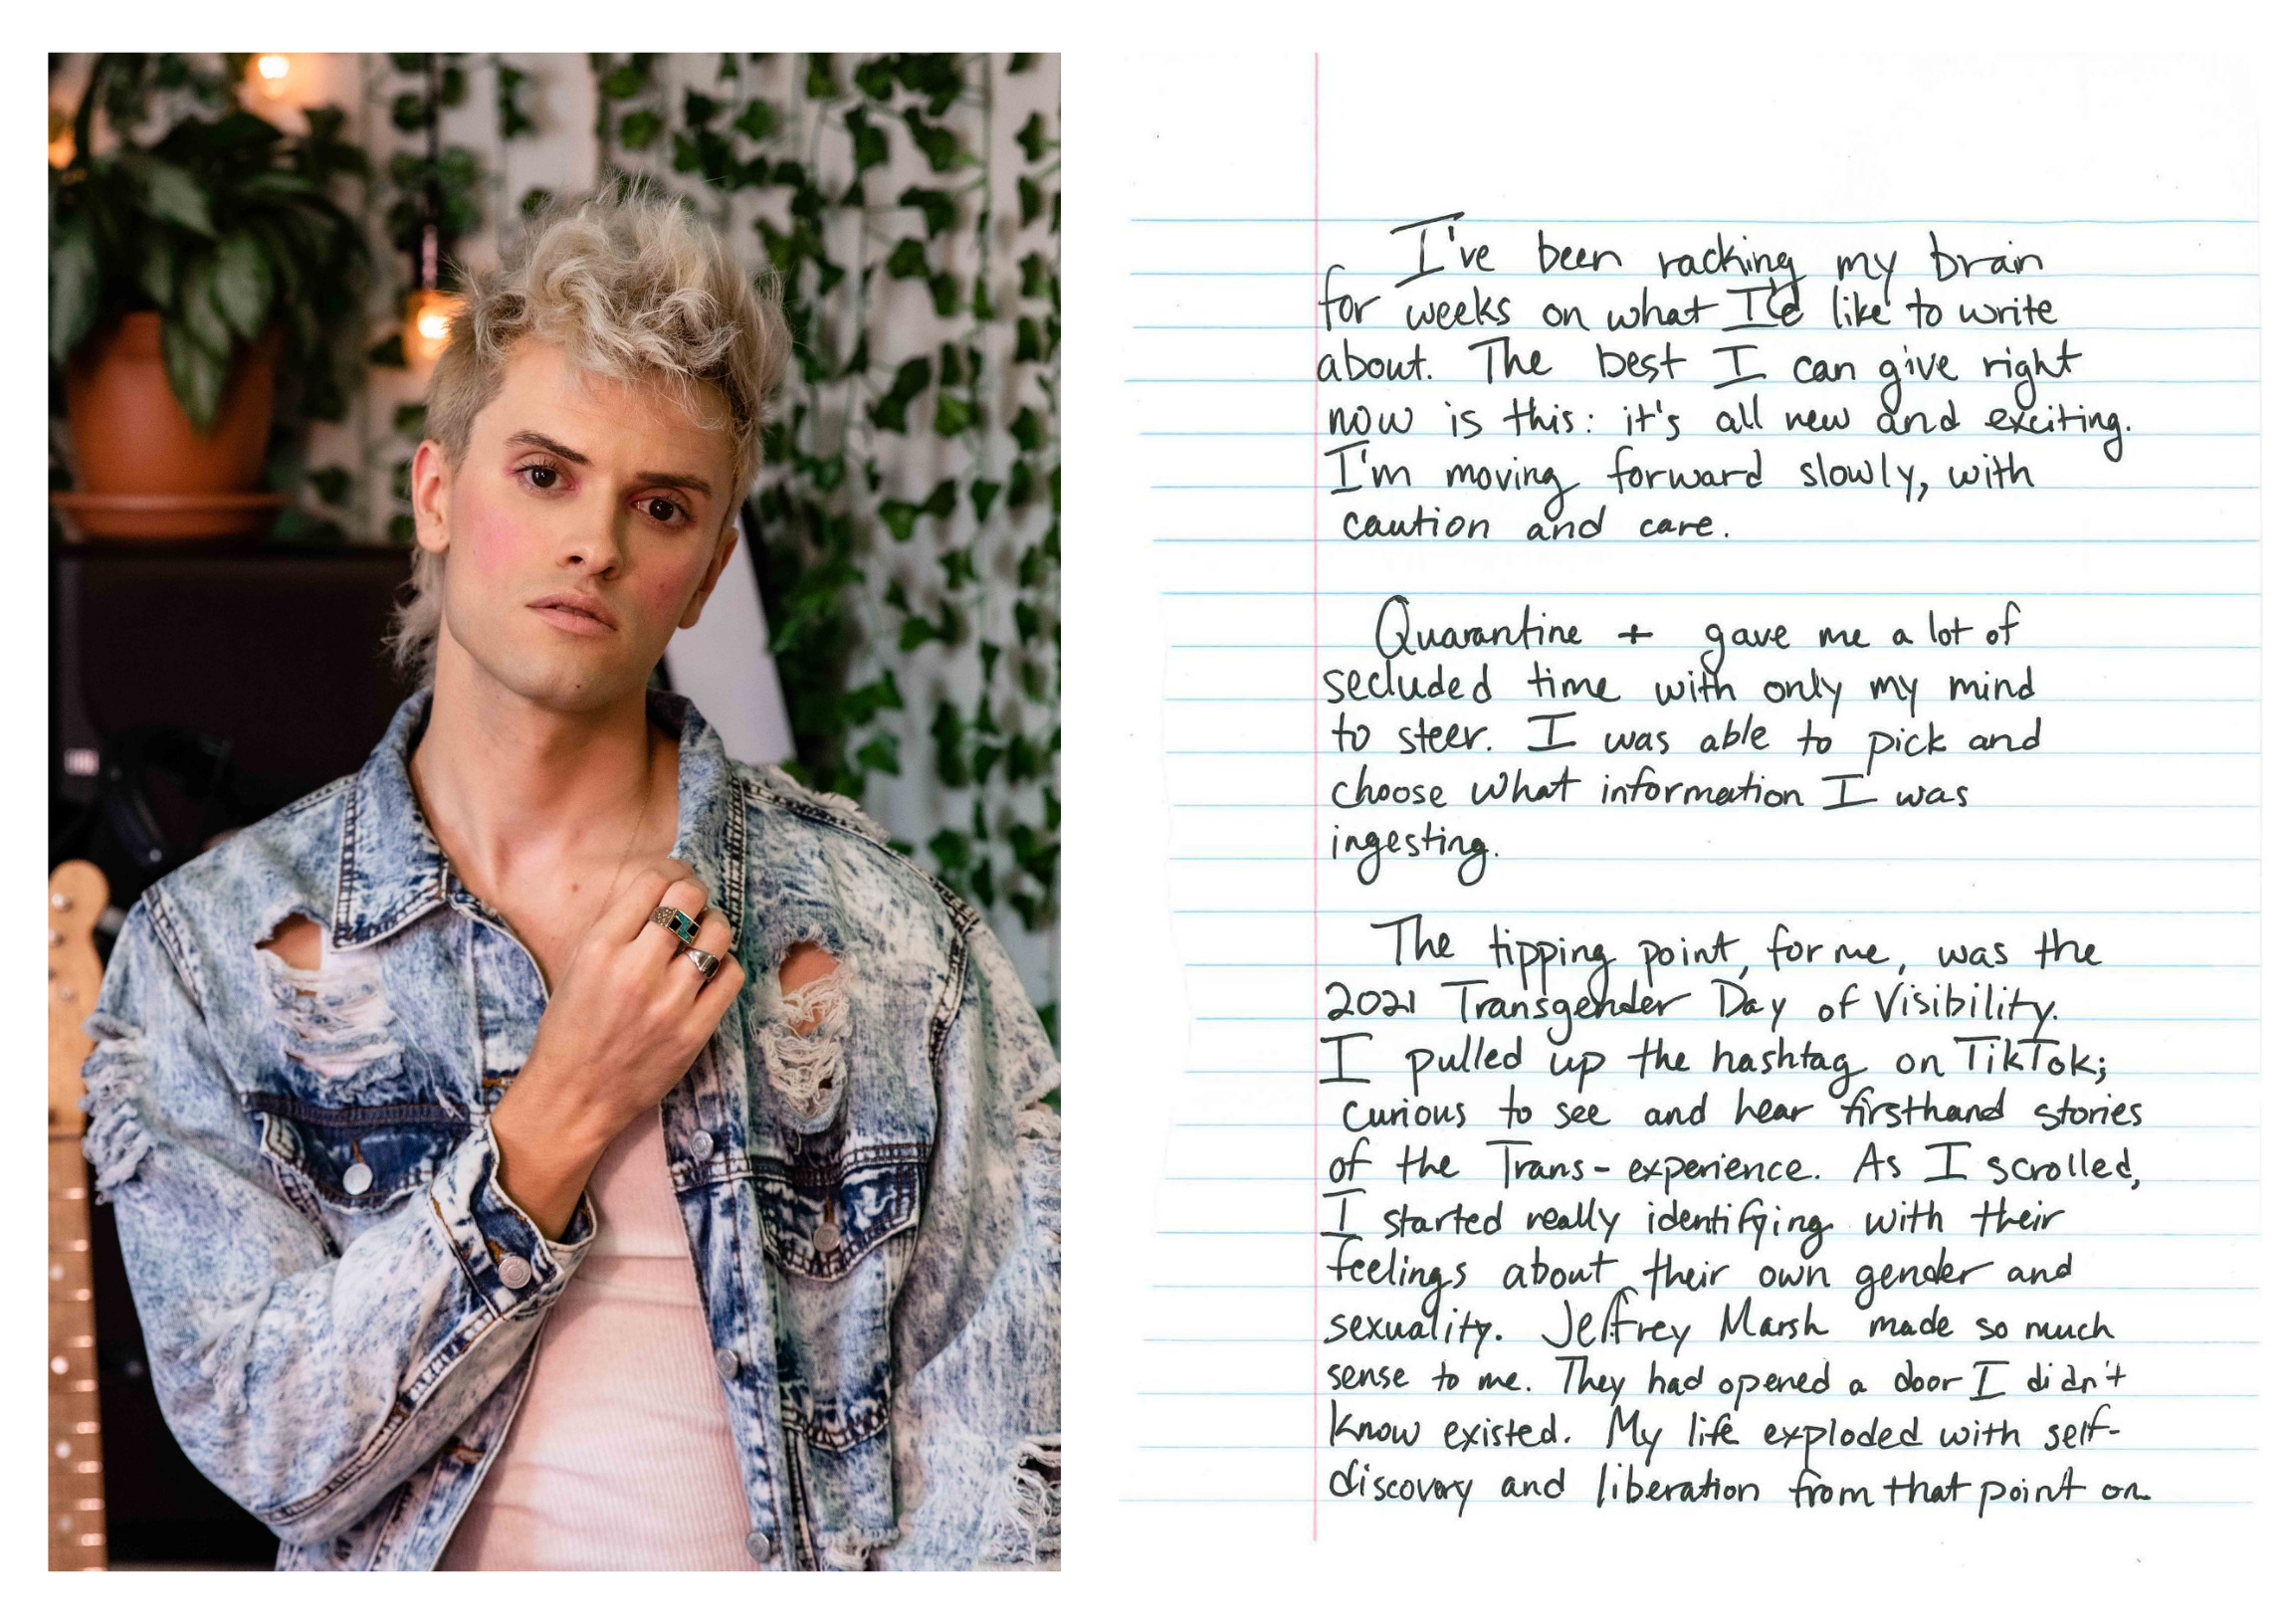 I've been racking my brain
for weeks on what I'd like to write
about. The best I can give right
now is this: it's all new and exciting.
I'm moving forward slowly, with
caution and care.
Quarantine + gave me a lot of
secluded time with only my mind
to steer. I was able to pick and
choose what information I was
ingesting.
The tipping point, for me, was the
2021 Transgender Day of Visibility.
I pulled up the hashtag on TikTok;
curious to see and hear firsthand stories
of the Trans-experience. As I scrolled,
I started really identifying with their
feelings about their own gender and
sexuality. Jeffrey Marsh made so much
sense to me. They had opened a door I didn't
know existed. My life exploded with self-
discovery and liberation from that point on.